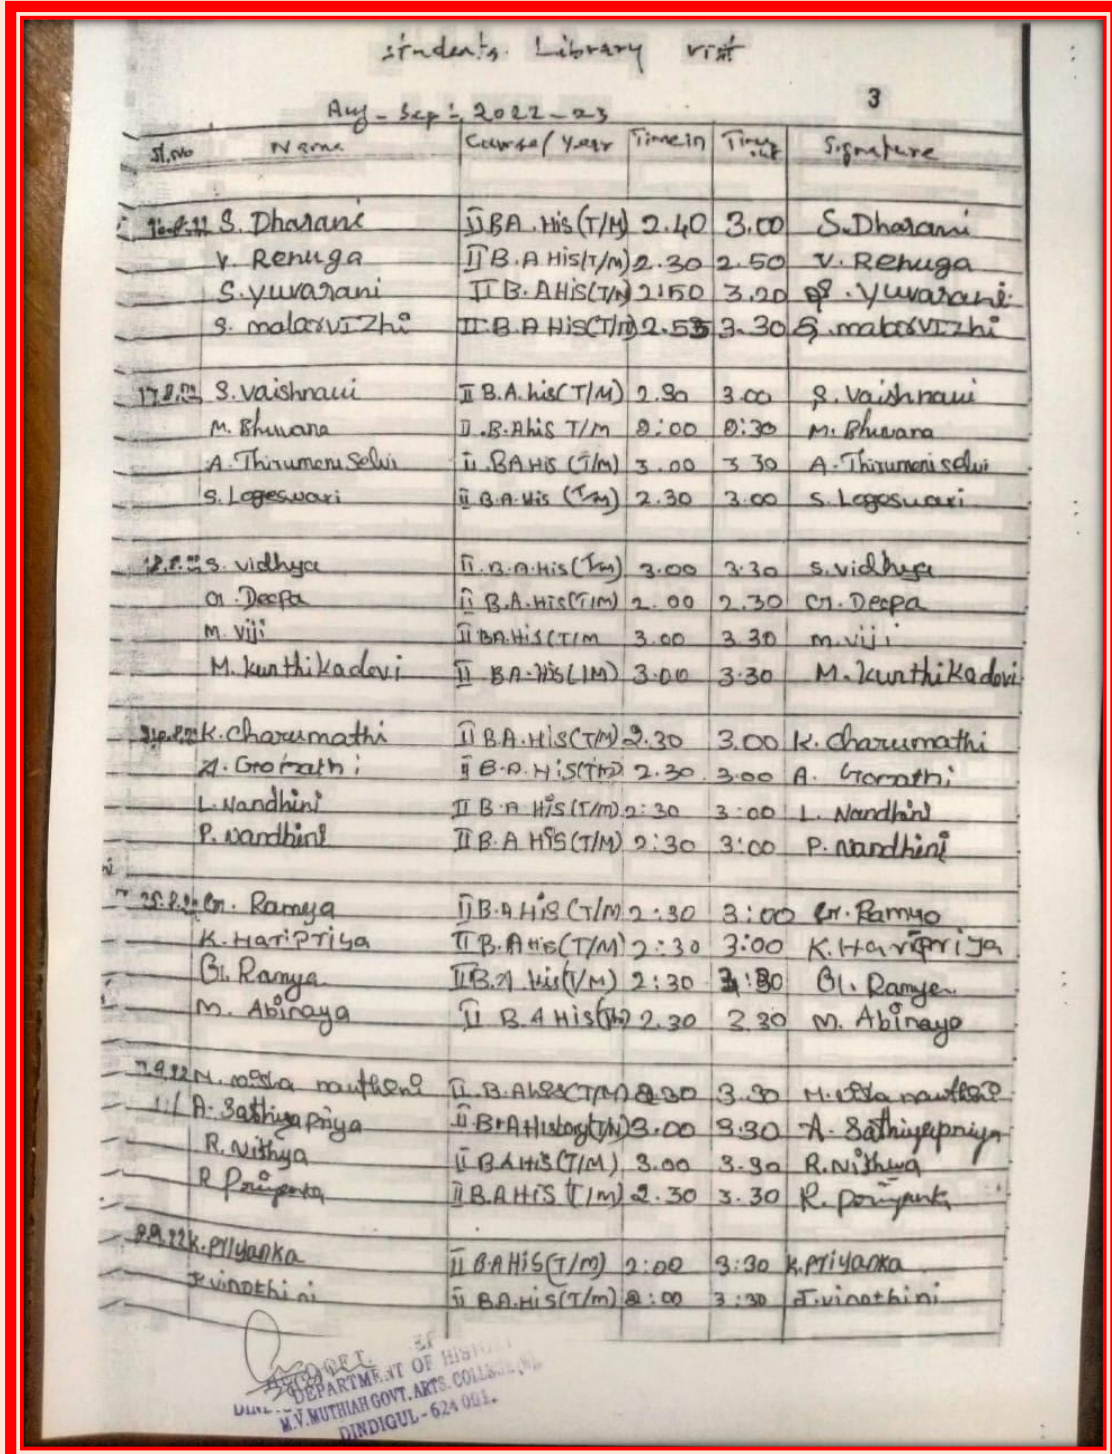 Students Library visit
3
Aug - Sep : 2022-23
Sl.No Name Course/Year Time in Time out Signature
S. Dharani II BA. His (T/M) 2.40 3.00 S. Dharani
V. Renuga II B.A His(T/M) 2.30 2.50 V. Renuga
S. Yuvarani II B.A His(T/M) 2:50 3.20 S. Yuvarani
S. malarvizhi II B.A His(T/M) 2.55 3.30 S. malarvizhi
17.8.22 S. Vaishnavi II B.A. his (T/M) 2.30 3.00 S. Vaishnavi
M. Bhuvana II .B.A his T/M 2:00 2:30 M. Bhuvana
A. Thirumeni Selvi II .BA His (T/M) 3.00 3.30 A. Thirumeni selvi
S. Logeswari II B.A. His (T/M) 2.30 3.00 S. Logeswari
S. vidhya II .B.A.His (T/M) 3.00 3.30 S. vidhya
G. Deepa II B.A.His(T/M) 2.00 2.30 G. Deepa
M. viji II BA.His(T/M 3.00 3.30 m. viji
M. kunthikadevi II BA.His(T/M) 3.00 3.30 M. kunthikadevi
K. Charumathi II BA.His(T/M) 2.30 3.00 K. Charumathi
A. Gomathi II B.A. His(T/M) 2.30 3.00 A. Gomathi
L. Nandhini II B.A His(T/M) 2:30 3:00 L. Nandhini
P. Nandhini II B.A His(T/M) 2:30 3:00 P. Nandhini
25.8.22 G. Ramya II B.A His (T/M 2:30 3:00 G. Ramya
K. Haripriya II B.A His(T/M) 2:30 3:00 K. Haripriya
G. Ramya II B.A his(T/M) 2:30 G. Ramya
M. Abinaya II B.A His(T/M) 2.30 3.30 M. Abinaya
7.9.22 M. II B.A his(T/M) 2.30 3.30 M.
A. Sathiyapriya II B.A History(T/M) 3.00 3.30 A. Sathiyapriya
R. Nithya II B.A His(T/M) 3.00 3.30 R. Nithya
R. Priyanka II B.A His (T/M) 2.30 3.30 R. Priyanka
8.9.22 K. Priyanka II B.A His(T/M) 2:00 3:30 K. Priyanka
J. vinothini II B.A. His(T/M) 2:00 3:30 J. vinothini
DEPARTMENT OF HISTORY
M.V.MUTHIAH GOVT. ARTS. COLLEGE (W),
DINDIGUL - 624 001.